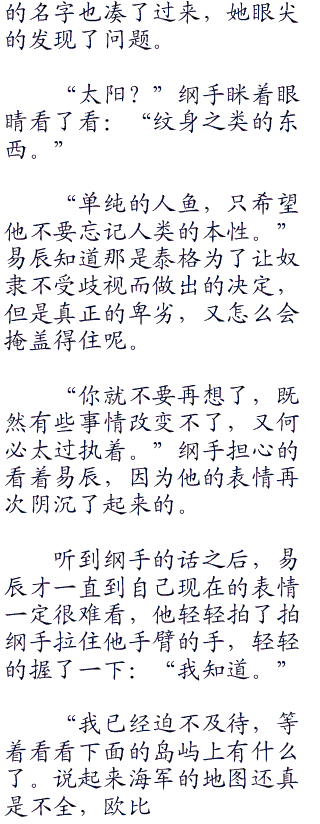 的名字也凑了过来，她眼尖
的发现了问题。
“太阳？”纲手眯着眼
睛看了看：“纹身之类的东
西。”
“单纯的人鱼，只希望
他不要忘记人类的本性。”
易辰知道那是泰格为了让奴
隶不受歧视而做出的决定，
但是真正的卑劣，又怎么会
掩盖得住呢。
“你就不要再想了，既
然有些事情改变不了，又何
必太过执着。”纲手担心的
看着易辰，因为他的表情再
次阴沉了起来的。
听到纲手的话之后，易
辰才一直到自己现在的表情
一定很难看，他轻轻拍了拍
纲手拉住他手臂的手，轻轻
的握了一下：“我知道。”
“我已经迫不及待，等
着看看下面的岛屿上有什么
了。说起来海军的地图还真
是不全，欧比